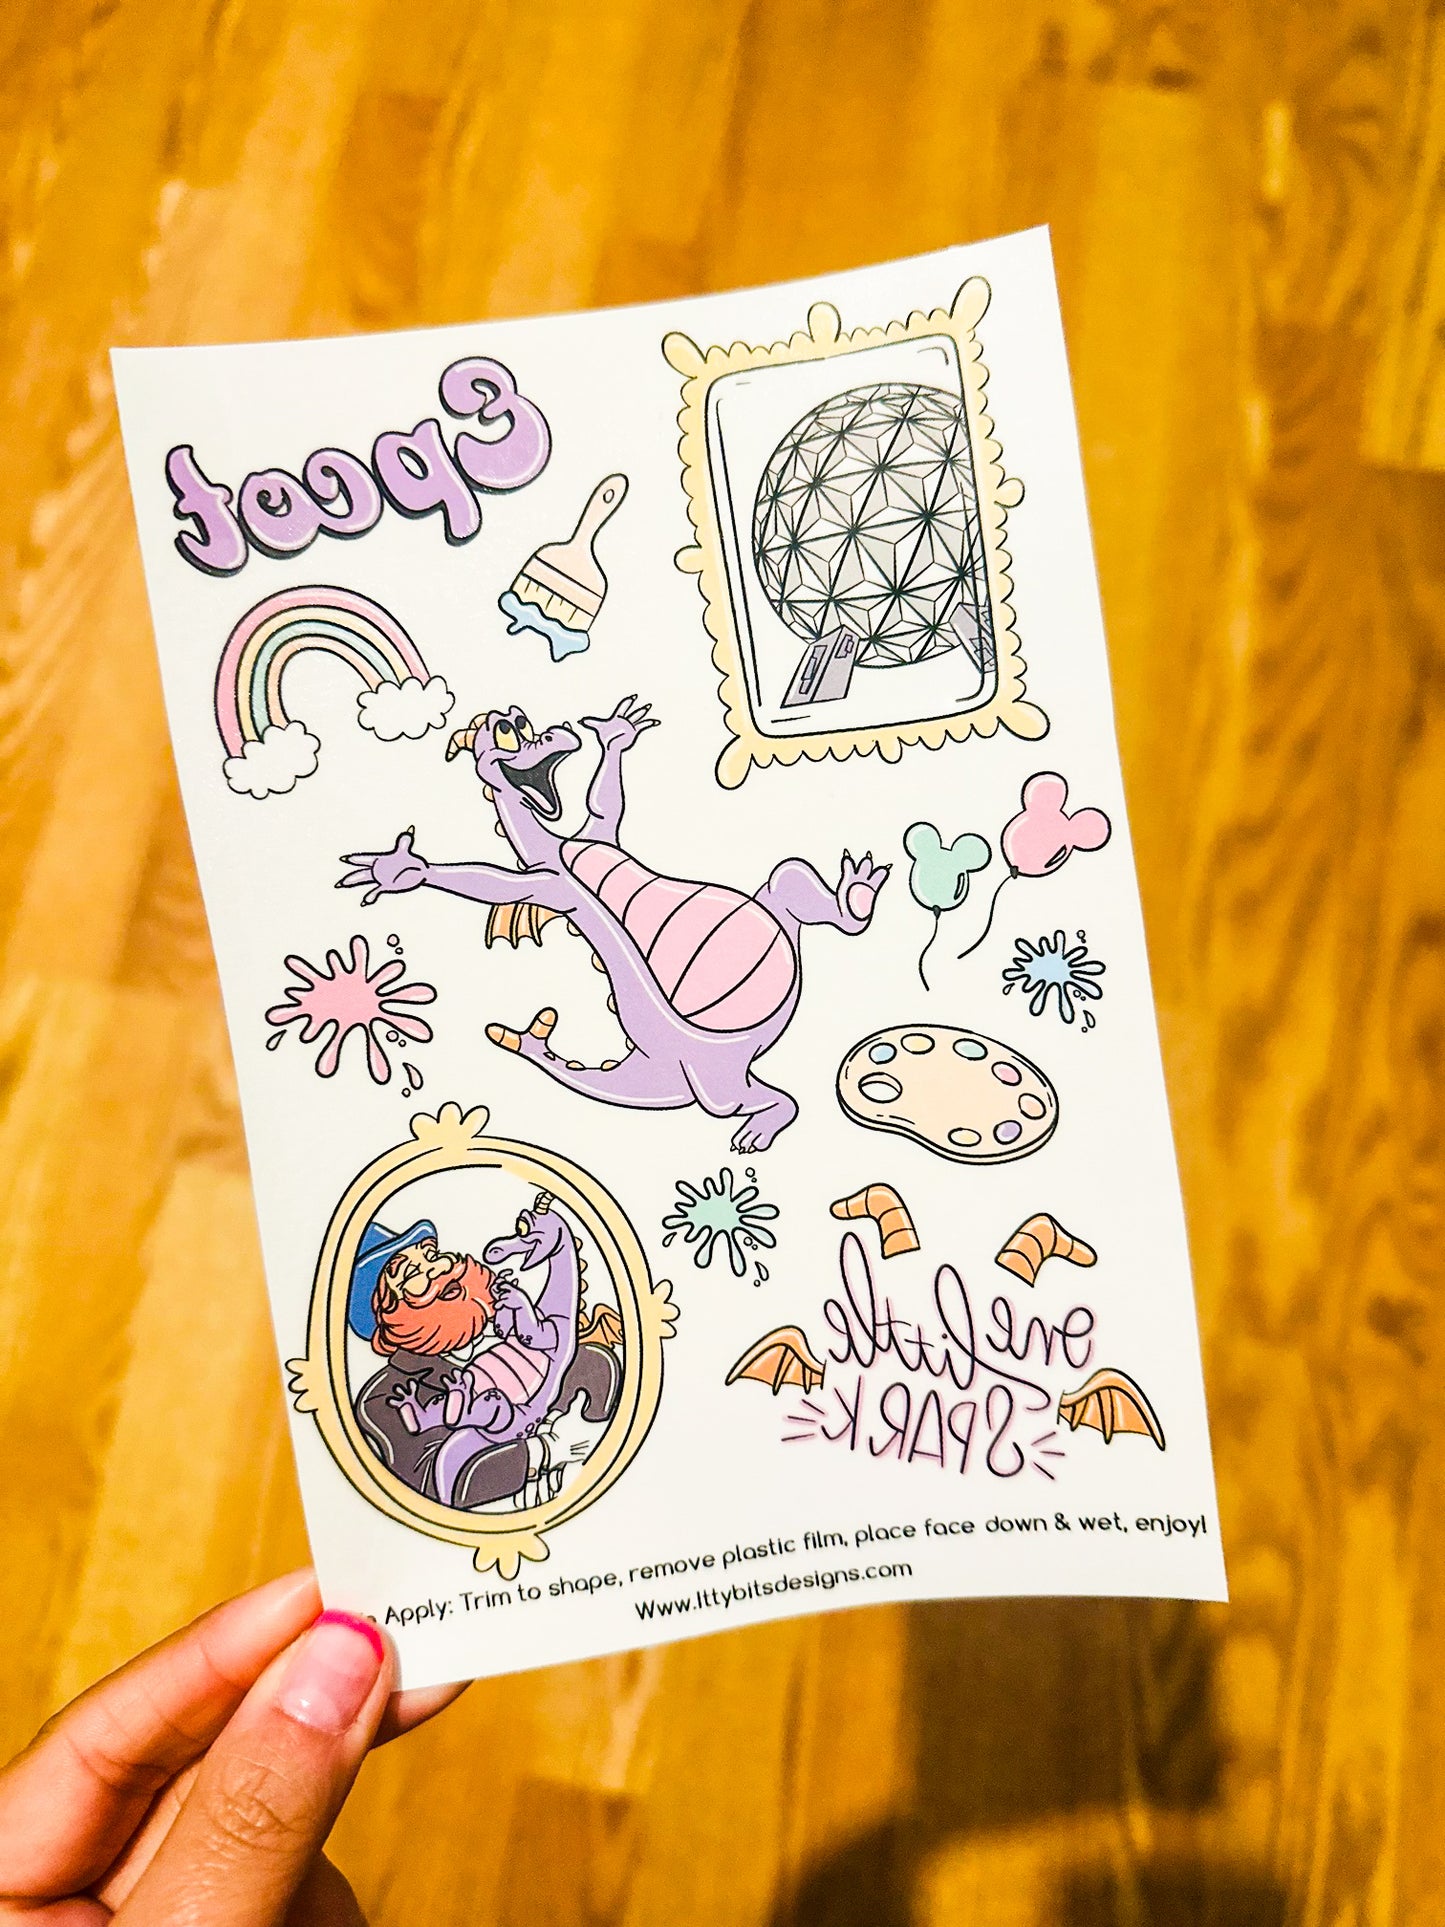 Epcot
one little
SPARK
Apply: Trim to shape, remove plastic film, place face down & wet, enjoy!
Www.Ittybitsdesigns.com